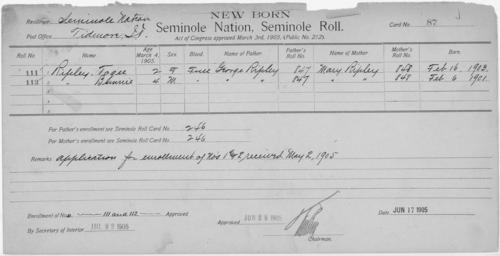 NEW BORN
Residence Seminole Nation Seminole Nation, Seminole Roll. Card No. 87
Post Office Tidmore, I.T. Act of Congress approved March 3rd, 1905, (Public No. 212).
Roll No Age March 4, 1905. Sex. Blood. Name of Father Father's Roll No. Name of Mother Mother's Roll No. Born.
111 Ripley, 2 F Full George Ripley 847 Mary Ripley 848 Feb 16, 1903
112 " Bunnie 4 M. " " " 847 " " 848 Feb 6 1901.
For Father's enrollment see Seminole Roll Card No. 246
For Mother's enrollment see Seminole Roll Card No. 246
Remarks Application for enrollment of Nos 1 & 2, received May 2, 1905
Enrollment of Nos 111 and 112 Approved
By Secretary of Interior 1905
Approved 1905
Chairman.
Date JUN 17 1905